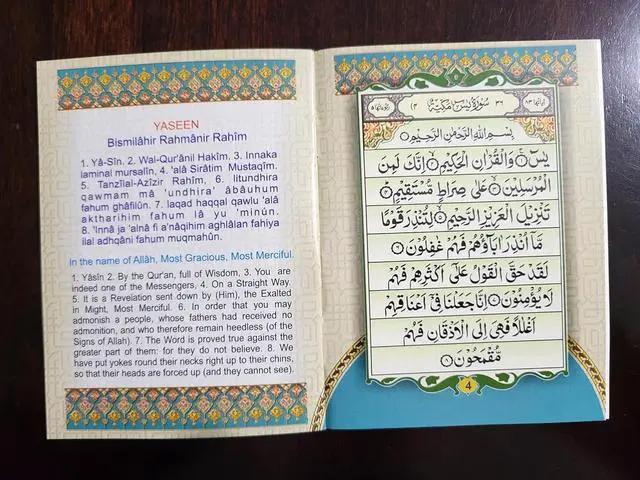 YASEEN
Bismilâhir Rahmânir Rahîm
1. Yâ-Sîn. 2. Wal-Qur'ânil Hakîm. 3. Innaka
laminal mursalîn, 4. 'alâ Sirâtim Mustaqîm.
5. Tanzîlal-Azîzir Rahîm, 6. litundhira
qawmam mâ 'undhira' âbâuhum
fahum ghâfilûn. 7. laqad haqqal qawlu 'alâ
aktharihim fahum lâ yu 'minûn.
8. 'Innâ ja 'alnâ fî a'nâqihim aghlâlan fahiya
ilal adhqâni fahum muqmahûn.
In the name of Allâh, Most Gracious, Most Merciful.
1. Yâsîn 2. By the Qur'an, full of Wisdom, 3. You are
indeed one of the Messengers, 4. On a Straight Way.
5. It is a Revelation sent down by (Him), the Exalted
in Might, Most Merciful. 6. In order that you may
admonish a people, whose fathers had received no
admonition, and who therefore remain heedless (of the
Signs of Allah). 7. The Word is proved true against the
greater part of them: for they do not believe. 8. We
have put yokes round their necks right up to their chins,
so that their heads are forced up (and they cannot see).
سُوْرَةُ يٰسٓ مَكِّيَّةٌ
بِسْمِ اللّٰهِ الرَّحْمٰنِ الرَّحِيْمِ
يٰسٓ ۝١ وَالْقُرْاٰنِ الْحَكِيْمِ ۝٢ اِنَّكَ لَمِنَ
الْمُرْسَلِيْنَ ۝٣ عَلٰى صِرَاطٍ مُّسْتَقِيْمٍ ۝٤
تَنْزِيْلَ الْعَزِيْزِ الرَّحِيْمِ ۝٥ لِتُنْذِرَ قَوْمًا
مَّاۤ اُنْذِرَ اٰبَآؤُهُمْ فَهُمْ غٰفِلُوْنَ ۝٦
لَقَدْ حَقَّ الْقَوْلُ عَلٰۤى اَكْثَرِهِمْ فَهُمْ
لَا يُؤْمِنُوْنَ ۝٧ اِنَّا جَعَلْنَا فِيْۤ اَعْنَاقِهِمْ
اَغْلٰلًا فَهِيَ اِلَى الْاَذْقَانِ فَهُمْ
مُّقْمَحُوْنَ ۝٨
4